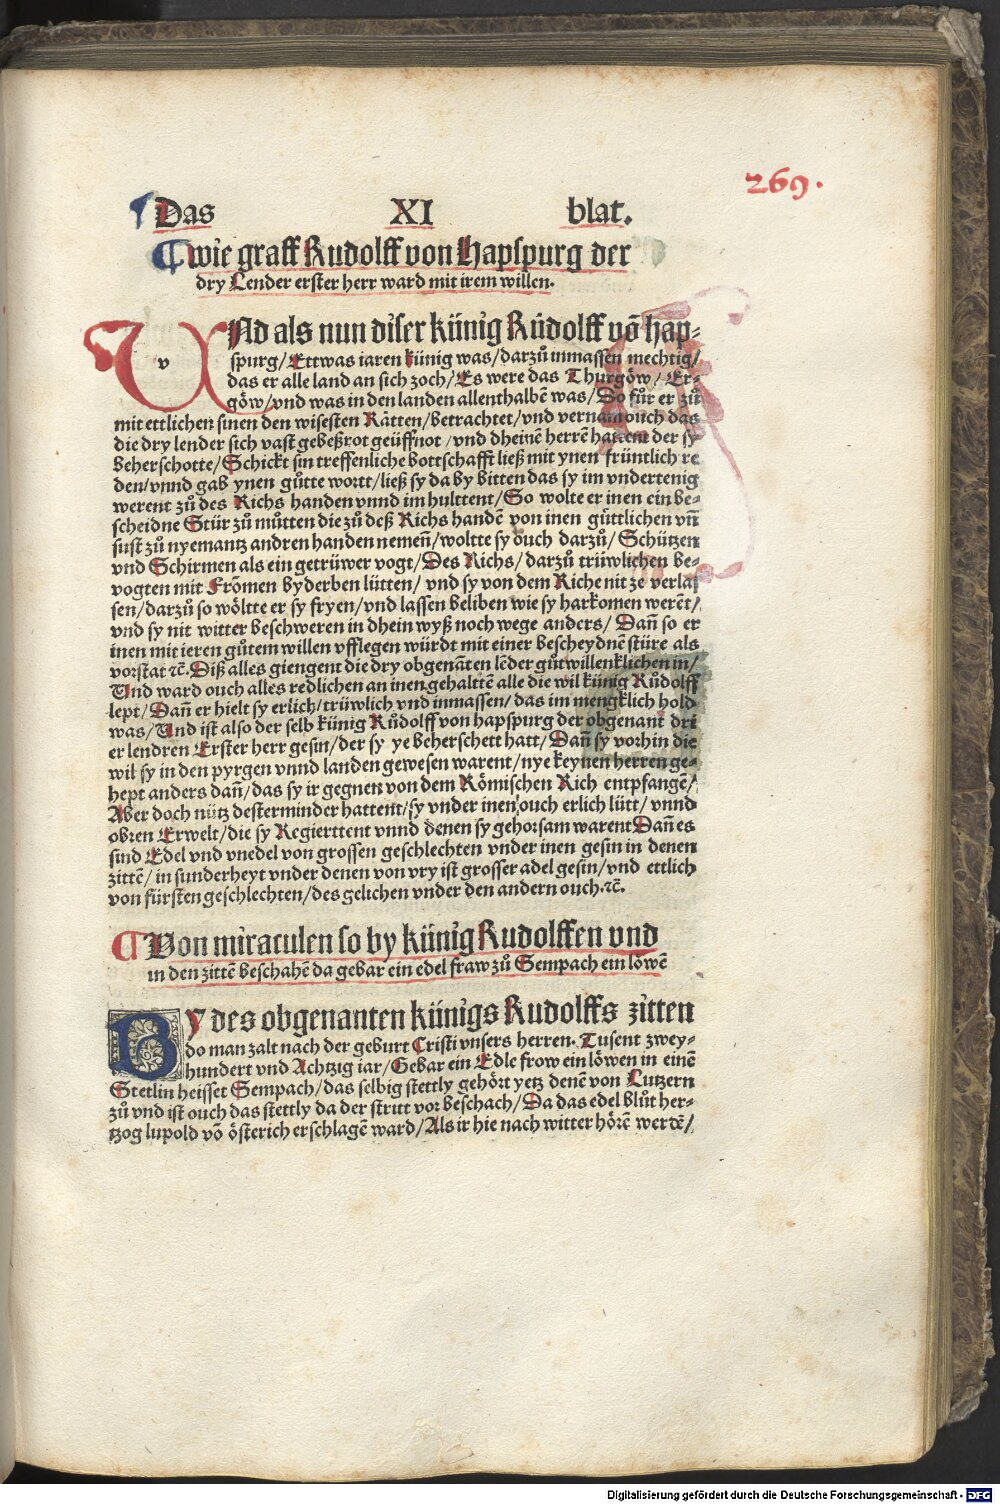 269.
Das XI blat.
¶ wie graff Rudolff von Hapspurg der
dry Lender erster herr ward mit irem willen.
UNd als nun diser künig Růdolff vō hap-
spurg/Ettwas iaren künig was/darzů unmassen mechtig/
das er alle land an sich zoch/Es were das Thurgöw/Er-
göw/vnd was in den landen allenthalbē was/Do fůr er zů
mit ettlichen sinen den wisesten Rätten/betrachtet/vnd vernam ouch das
die dry lender sich vast gebeßrot geüffnot/vnd dheinē herrē hattent der sy
beherschotte/Schickt sin treffenliche bottschafft ließ mit ynen früntlich re
den/vnnd gab ynen gůtte wortt/ließ sy da by bitten das sy im vndertenig
werent zů des Richs handen vnnd im hulttent/So wolte er inen ein be-
scheidne Stür zů můtten die zů deß Richs handē von inen güttlichen vñ
sust zů nyemantz andren handen nemeñ/woltte sy ouch darzů/Schützen
vnd Schirmen als ein getrüwer vogt/Des Richs/darzů trüwlichen be-
vogten mit Frömen byderben lütten/vnd sy von dem Riche nit ze verlas
sen/darzů so wöltte er sy fryen/vnd lassen beliben wie sy harkomen werēt/
vnd sy nit witter beschweren in dhein wyß noch wege anders/Dañ so er
inen mit ieren gůtem willen vfflegen würdt mit einer bescheydnē stüre als
vorstat ꝛc̄. Diß alles giengent die dry obgenāten lēder gůtwillenklichen in/
Und ward ouch alles redlichen an inen gehaltē alle die wil künig Růdolff
lept/Dañ er hielt sy erlich/trüwlich vnd inmassen/das im mengklich hold
was/Und ist also der selb künig Růdolff von hapspurg der obgenant dri
er lendren Erster herr gesin/der sy ye beherschett hatt/Dañ sy vorhin die
wil sy in den pyrgen vnnd landen gewesen warent/nye keynen herren ge-
hept anders dañ/das sy ir gegnen von dem Römischen Rich entpfangē/
Aber doch nütz desterminder hattent/sy vnder inen ouch erlich lütt/vnnd
obren Erwelt/die sy Regierttent vnnd denen sy gehorsam warent Dañ es
sind Edel vnd vnedel von grossen geschlechten vnder inen gesin in denen
zittē/in sunderheyt vnder denen von vry ist grosser adel gesin/vnd ettlich
von fürsten geschlechten/des gelichen vnder den andern ouch.ꝛc̄.
¶ Von miraculen so by künig Rudolffen vnd
in den zittē beschahē da gebar ein edel fraw zů Sempach ein löwē
BY des obgenanten künigs Rudolffs zitten
do man zalt nach der geburt Cristi vnsers herren. Tusent zwey-
hundert vnd Achtzig iar/Gebar ein Edle frow ein löwen in einē
Stetlin heisset Sempach/das selbig stettly gehört yetz denē von Lutzern
zů vnd ist ouch das stettly da der stritt vor beschach/Da das edel blůt her-
tzog lupold vō österich erschlagē ward/Als ir hie nach witter hörē werdē/
Digitalisierung gefördert durch die Deutsche Forschungsgemeinschaft - DFG